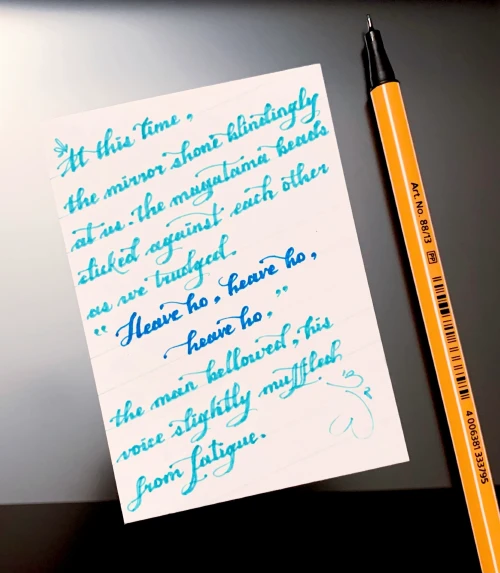 At this time,
the mirror shone blindingly
at us. The magatama beads
clicked against each other
as we trudged.
"Heave ho, heave ho,
heave ho,"
the man bellowed, his
voice slightly muffled
from fatigue.
Art. No. 88/13 PP
4 006381 333795